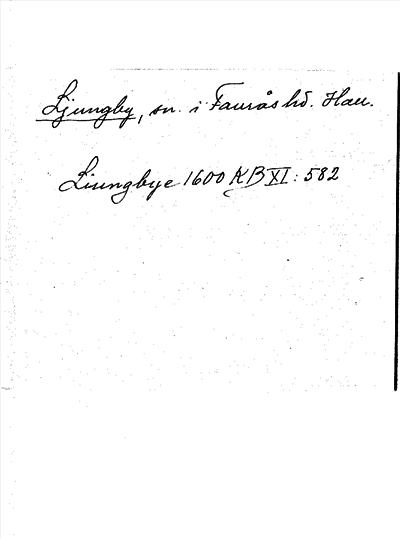 Ljungby, sn. i Faurås hd. Hall.
Liungbye 1600 KB XI: 582